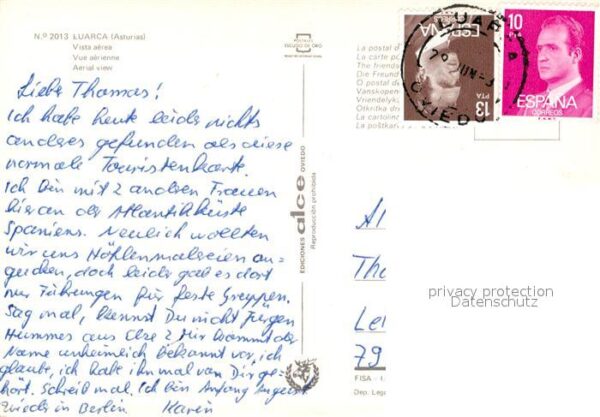 N.º 2013 LUARCA (Asturias)
Vista aérea
Vue aérienne
Aerial view
Liebe Thomas!
Ich habe heute leider nichts
anderes gefunden als diese
normale Touristenkarte.
Ich bin mit 2 anderen Frauen
hier an der Atlantikküste
Spaniens. Neulich wollten
wir uns Höhlenmalereien an-
gucken, doch leider gab es dort
nur Führungen für feste Gruppen.
Sag mal, kennst Du nicht Jürgen
Hummes aus Mir kommt der
Name unheimlich bekannt vor, ich
glaube, ich habe ihn mal von Dir ge-
hört. Schreib mal. Ich bin Anfang August
wieder in Berlin Karin
EDICIONES alce OVIEDO
Reproducción prohibida
La postal d
La carte po
The friends
Die Freund
O postal d
Vanskopen
Vriendelyk
Otkritka dr
La cartolin
La poštkar
ESPAÑA
13
PTA
LUAR
JUN
OVIEDO
10
ESPAÑA
CORREOS
Al
Th
Le
79
privacy protection
Datenschutz
FISA - 
Dep. Lega